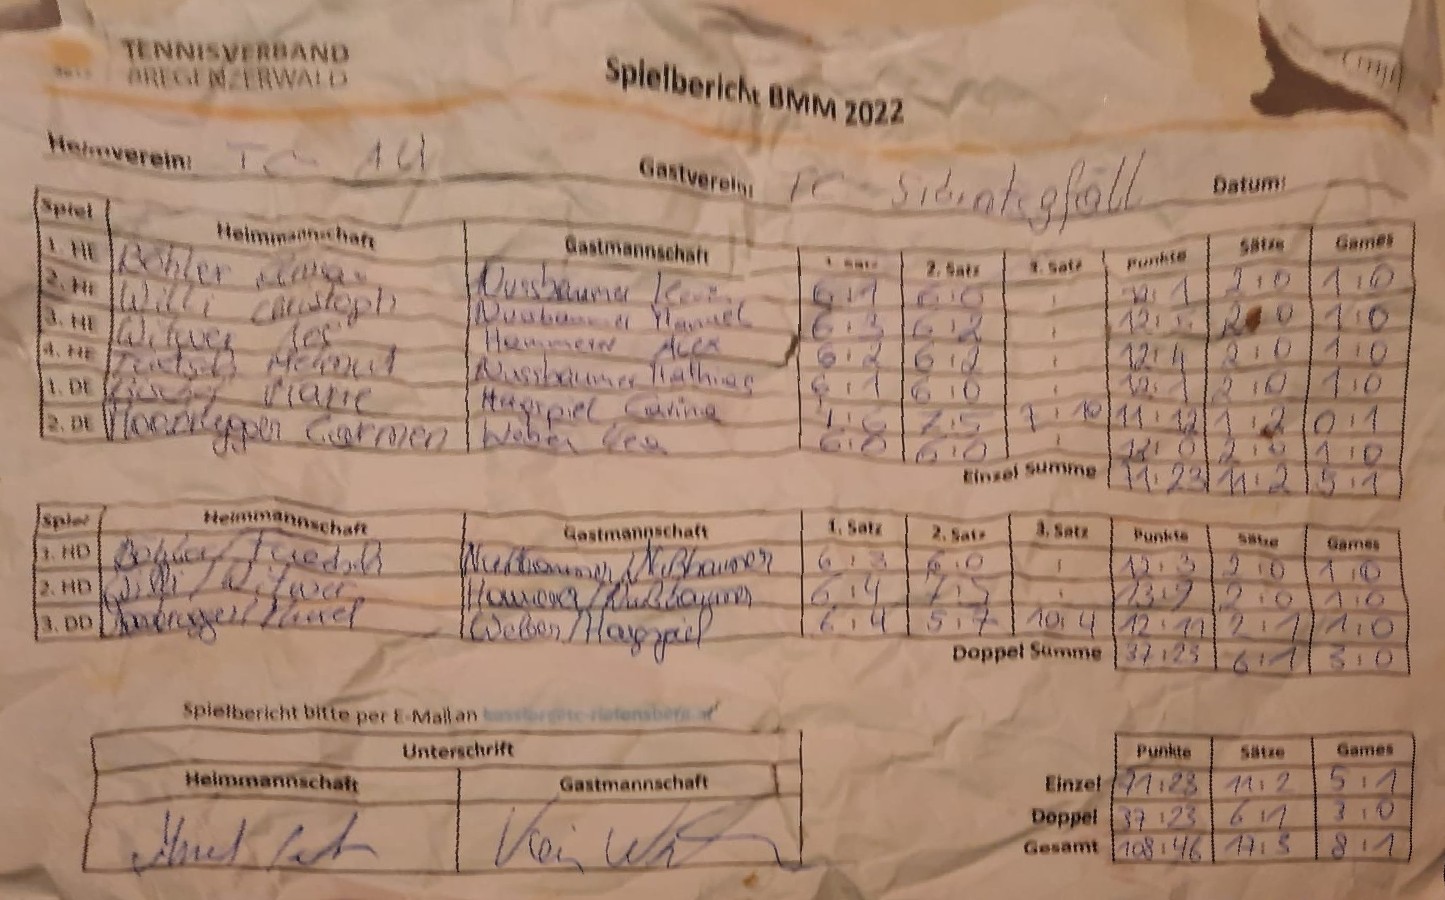 TENNISVERBAND
BREGENZERWALD
Spielbericht BMM 2022
Heimverein: TC - AU Gastverein: TC - Sibratsgfäll Datum:
Spiel Heimmannschaft Gastmannschaft 1. Satz 2. Satz 3. Satz Punkte Sätze Games
1. HE Böhler Nussbaumer 6:1 6:0 : 12:1 2:0 1:0
2. HE Willi Christoph Nussbaumer Manuel 6:3 6:2 : 12:5 2:0 1:0
3. HE Hammerer Alex 6:2 6:2 : 12:4 2:0 1:0
4. HE Helmut Nussbaumer Mathias 6:1 6:0 : 12:1 2:0 1:0
1. DE Hagspiel Carina 4:6 7:5 7:10 11:12 1:2 0:1
2. DE Moosbrugger Carmen Weber Lea 6:0 6:0 : 12:0 2:0 1:0
Einzel Summe 71:23 11:2 5:1
Spiel Heimmannschaft Gastmannschaft 1. Satz 2. Satz 3. Satz Punkte Sätze Games
1. HD Nußbaumer/Nußbaumer 6:3 6:0 : 12:3 2:0 1:0
2. HD Willi/Witwer Hammerer/Nußbaumer 6:4 7:5 : 13:9 2:0 1:0
3. DD Weber/Hagspiel 6:4 5:7 10:4 12:11 2:1 1:0
Doppel Summe 37:23 6:1 3:0
Spielbericht bitte per E-Mail an
Unterschrift
Heimmannschaft Gastmannschaft
Punkte Sätze Games
Einzel 71:23 11:2 5:1
Doppel 37:23 6:1 3:0
Gesamt 108:46 17:3 8:1